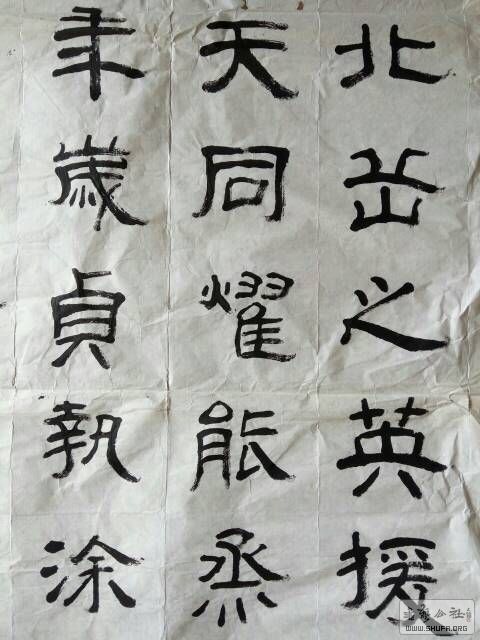 北岳之英援
天同耀能烝
年歲貞執涂
WWW.SHUFA.ORG